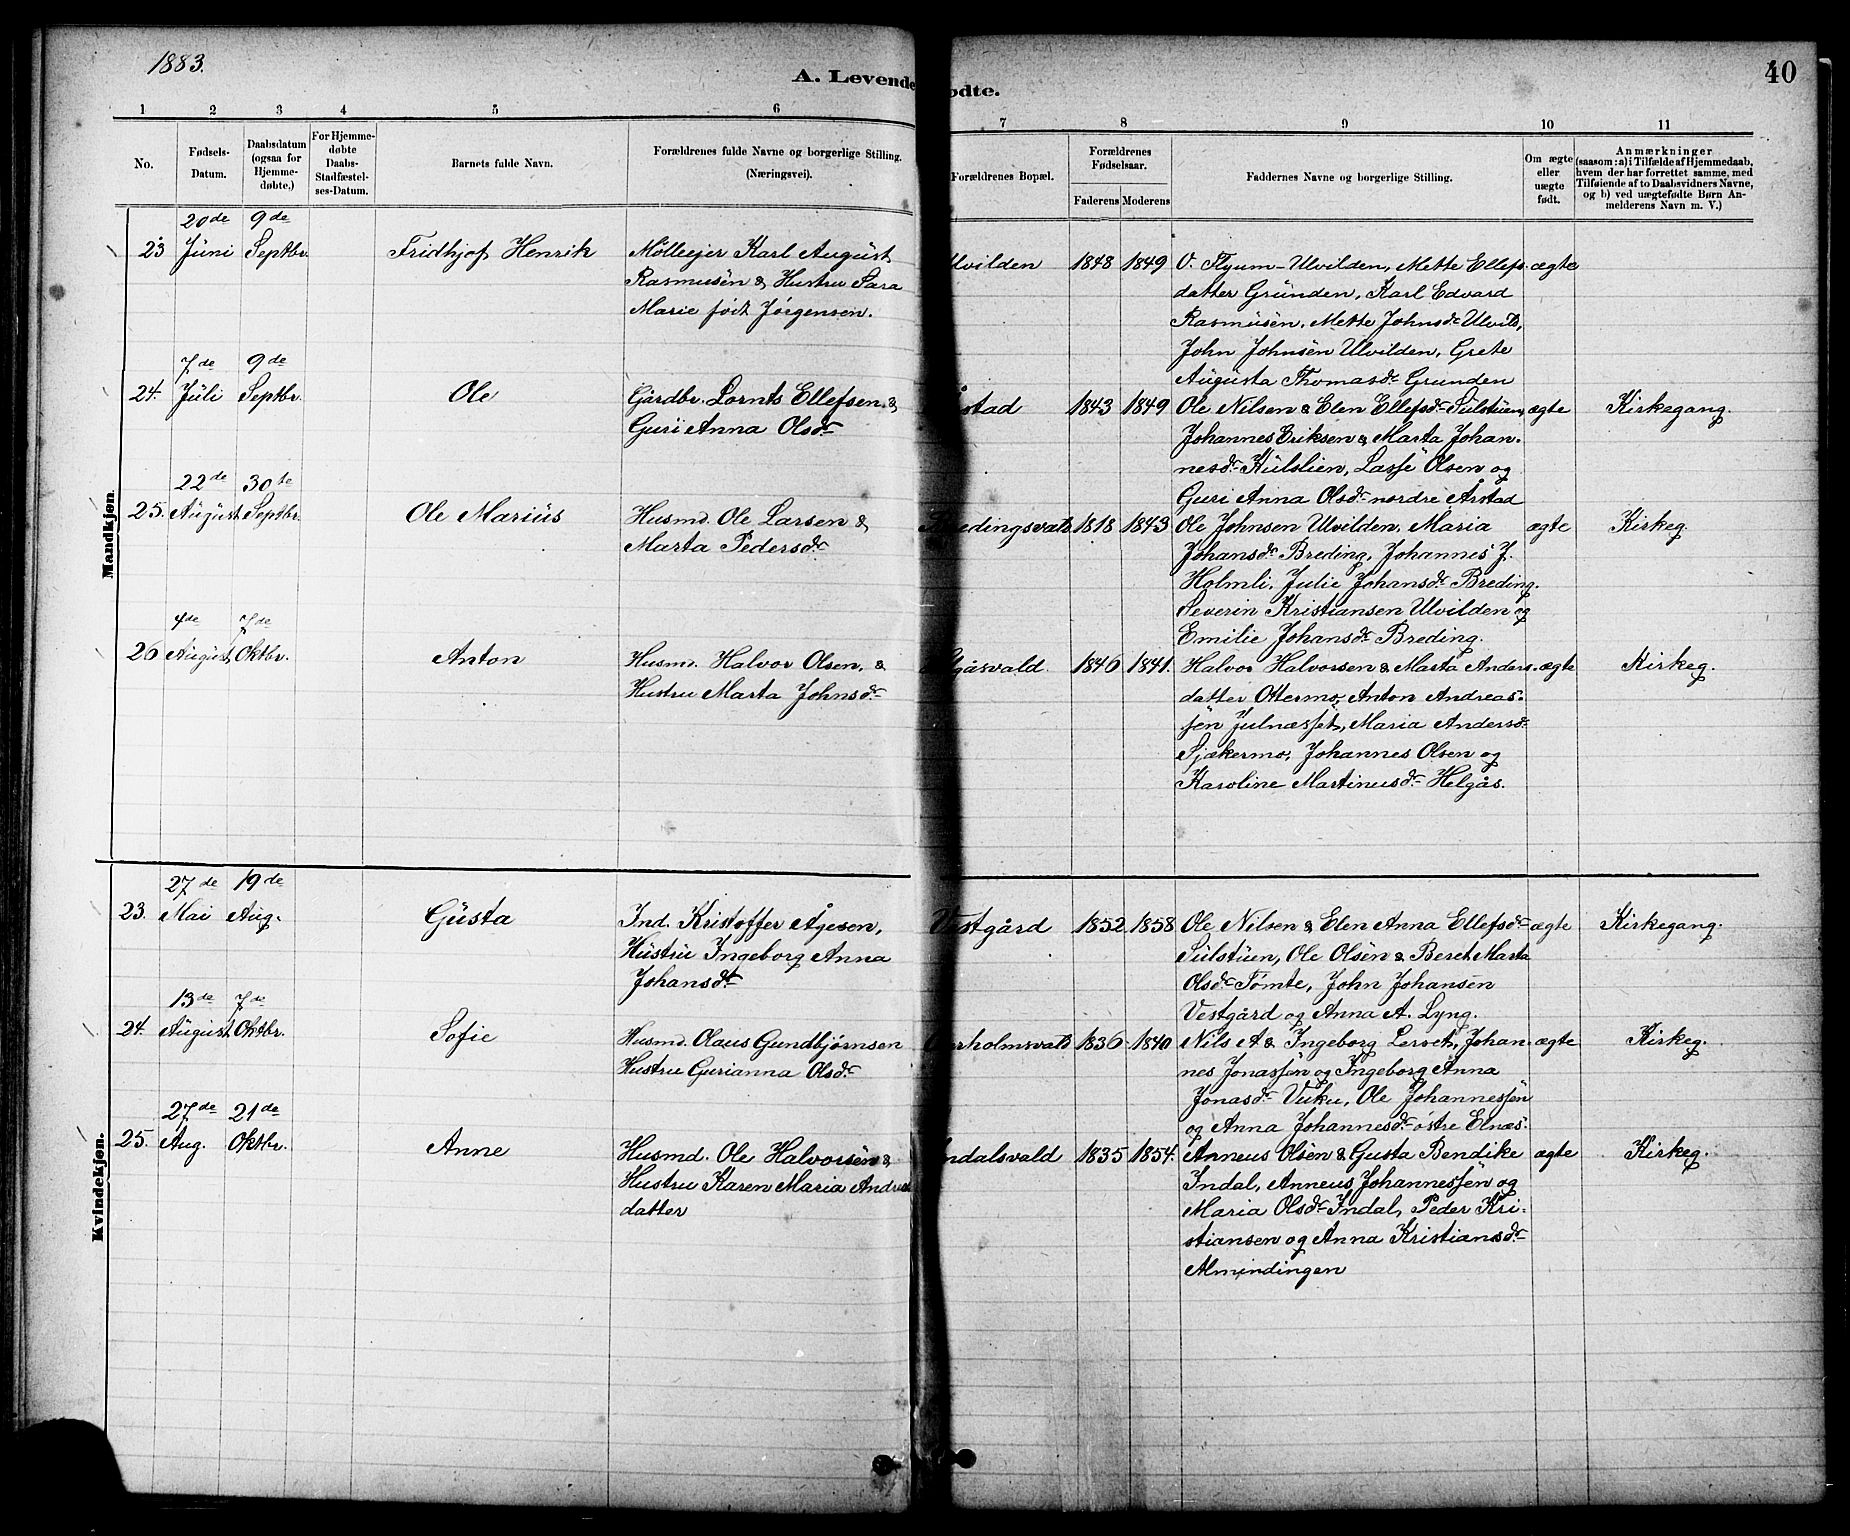 1883.
40
A. Levende
ødte.
1 2 3 4 5 6 7 8 9 10 11
No.
Fødsels-
Datum.
Daabsdatum
(ogsaa for
Hjemme-
døbte.)
For Hjemme-
døbte
Daabs-
Stadfæstel-
ses-Datum.
Barnets fulde Navn.
Forældrenes fulde Navne og borgerlige Stilling.
(Næringsvei).
Forældrenes Bopæl.
Forældrenes
Fødselsaar.
Faderens Moderens
Faddernes Navne og borgerlige Stilling.
Om ægte
eller
uægte
født.
Anmærkninger
(saasom: a) i Tilfælde af Hjemmedaab,
hvem der har forrettet samme, med
Tilføiende af to Daabsvidners Navne,
og b) ved uægtefødte Børn An-
melderens Navn m. V.)
Mandkjøn.
20de 9de
23 Juni Septbr. Fridhjof Henrik
Mølleejer Karl August
Rasmusen & Hustru Sara
Marie født Jørgensen.
Ulvilden 1848 1849
V. Flyum-Ulvilden, Mette Ellefs-
datter Grunden, Karl Edvard
Rasmusen, Mette Johnsdr Ulvild,
John Johnsen Ulvilden, Grete
Augusta Thomasdr Grunden
ægte
7de 9de
24. Juli Septbr. Ole
Gårdbr. Lornts Ellefsen &
Guri Anna Olsdr
Årstad 1843 1849
Ole Nilsen & Elen Ellefsdr Sulstuen,
Johannes Eriksen & Marta Johan-
nesdr Kulslien, Lasse Olsen og
Guri Anna Olsdr nordre Årstad
ægte Kirkegang.
22de 30te
25. August Septbr. Ole Marius
Husmd. Ole Larsen &
Marta Pedersdr
Bredingsvald 1818 1843
Ole Johnsen Ulvilden, Maria
Johansdr Breding, Johannes J.
Holmli, Julie Johansdr Breding,
Severin Kristiansen Ulvilden og
Emilie Johansdr Breding.
ægte Kirkeg.
4de 7de
26 August Oktbr. Anton
Husmd. Halvor Olsen, &
Hustru Marta Johnsdr
Helgåsvald 1846 1841.
Halvor Halvorsen & Marta Anders-
datter Ottermo, Anton Andreas-
sen Julnæsset, Maria Andersdr
Sjækermo, Johannes Olsen og
Karoline Martinusdr Helgås.
ægte Kirkeg.
Kvindekjøn.
27de 19de
23. Mai Aug. Gusta
Ind. Kristoffer Ågesen,
Hustru Ingeborg Anna
Johansdt
Vestgård 1852 1858
Ole Nilsen & Elen Anna Ellefsdr
Sulstuen, Ole Olsen & Beret Marta
Olsdr Tømte, John Johansen
Vestgård og Anna A. Lyng.
ægte Kirkegang.
13de 7de
24. August Oktbr. Sofie
Husmd. Olaus Gundbjørnsen
Hustru Gurianna Olsdr
1836 1840
Nils A & Ingeborg Lervet, Johan-
nes Jonassen og Ingeborg Anna
Jonasdr Vuku, Ole Johannessen
og Anna Johannesdr østre Elnæs.
ægte Kirkeg.
27de 21de
25. Aug. Oktbr. Anne
Husmd. Ole Halvorsen &
Hustru Karen Maria Andreas
datter
Indalsvald 1835 1854.
Anneus Olsen & Gusta Bendike
Indal, Anneus Johannessen og
Maria Olsdr Indal, Peder Kri-
stiansen og Anna Kristiansdr
Almindingen
ægte Kirkeg.